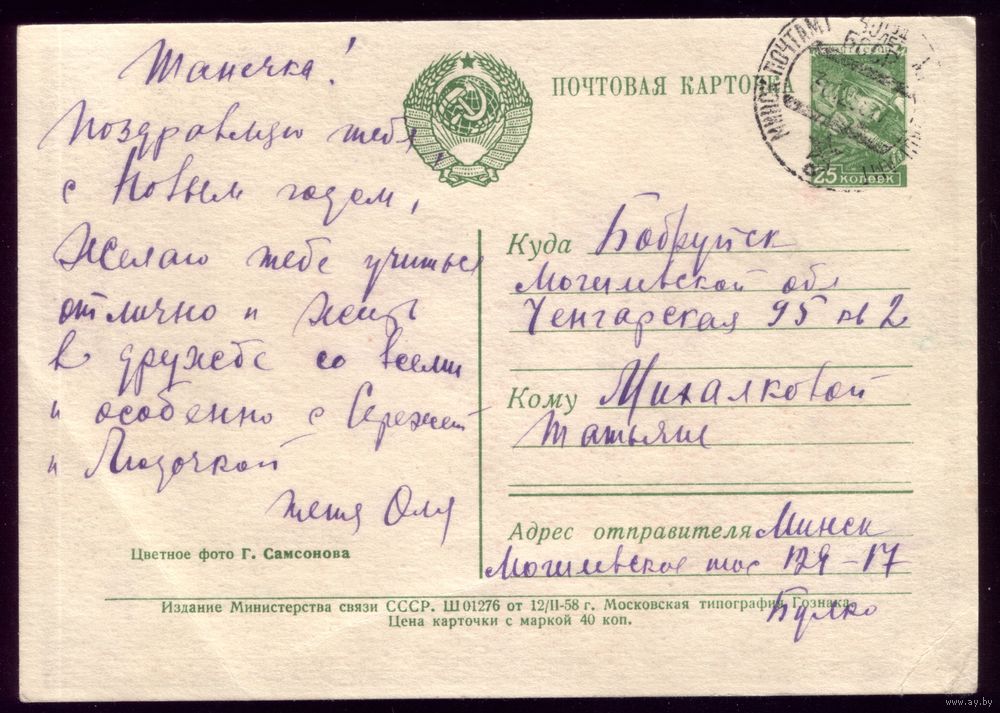 Танечка!
Поздравляю тебя
с Новым годом,
Желаю тебе учиться
отлично и жить
в дружбе со всеми
и особенно с Сережей
и Людочкой
тетя Оля
Цветное фото Г. Самсонова
ПОЧТОВАЯ КАРТОЧКА
МИНСК ПОЧТАМТ
25 КОПЕЕК
Куда Бобруйск
Могилевской обл
Ченгарская 95 кв 2
Кому Михалковой
Татьяне
Адрес отправителя Минск
Могилевское шос 129-17
Булко
Издание Министерства связи СССР. Ш 01276 от 12/II-58 г. Московская типография Гознака.
Цена карточки с маркой 40 коп.
www.ay.by